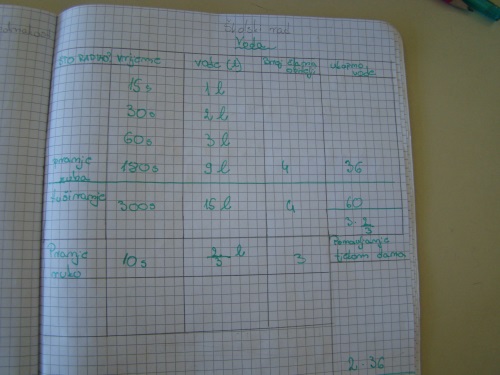 Školski rad
Voda
ŠTO RADIMO vrijeme vode (l) broj članova obitelji ukupno vode
15s 1 l
30s 2 l
60s 3 l
pranje zuba 180s 9 l 4 36
tuširanje 300s 15 l 4 60
3 · 2/3
Pranje ruku 10s 2/3 l 3
tijekom dana
2 · 36